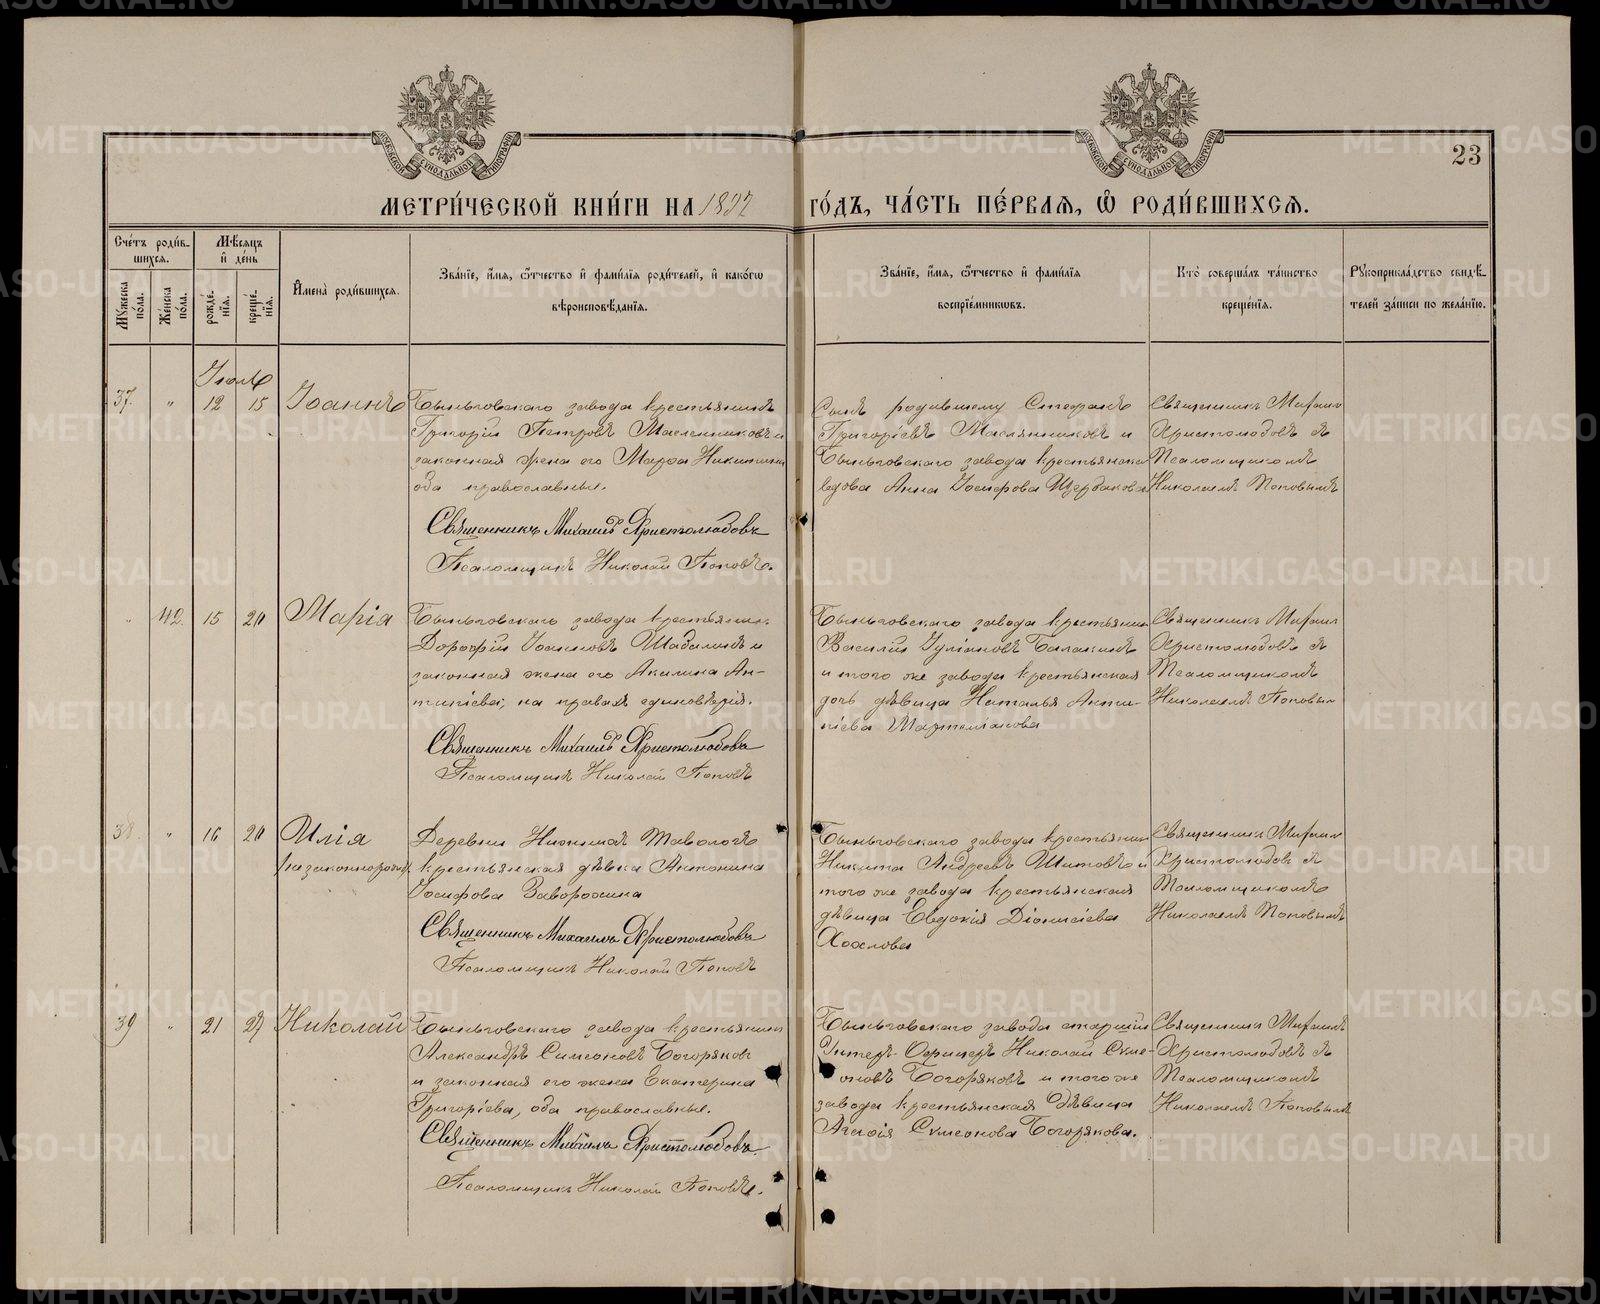 23
МЕТРИ́ЧЕСКОЙ КНИ́ГИ НА 1897 ГО́ДЪ, ЧА́СТЬ ПЕ́РВАЯ, Ѡ҆ РОДИ́ВШИХСЯ.
Сче́тъ роди́в-
шихся.
Мꙋ́жеска по́ла.
Же́нска по́ла.
Мѣ́сяцъ и҆ де́нь
рожде́-
нїя.
креще́-
нїя.
И҆мена̀ роди́вшихся.
Зва́нїе, и҆́мя, ѻ҆́тчество и҆ фами́лїя роди́телей, и҆ како́гѡ
вѣроисповѣ́данїя.
Зва́нїе, и҆́мя, ѻ҆́тчество и҆ фами́лїя
воспрїе́мниковъ.
Кто̀ соверша́лъ та́инство
креще́нїя.
Рꙋкоприкла́дство свидѣ́-
телей за́писи по жела́нїю.
Іюль
37. " 12 15 Іоаннъ
Быньговскаго завода крестьянинъ
Григорій Петровъ Масленниковъ и
законная жена его Марѳа Никитина
оба православные.
Священникъ Михаилъ Христолюбовъ
Псаломщикъ Николай Поповъ.
Сынъ родившему Стефанъ
Григоріевъ Маслянниковъ и
Быньговскаго завода крестьянская
вдова Анна Іосифова Щербакова
Священникъ Михаилъ
Христолюбовъ съ
Псаломщикомъ
Николаемъ Поповымъ
" 42. 15 20 Марія
Быньговскаго завода крестьянинъ
Дороѳей Іоанновъ Шабалинъ и
законная жена его Акилина Ан-
типіева, на правахъ единовѣрія.
Священникъ Михаилъ Христолюбовъ
Псаломщикъ Николай Поповъ
Быньговскаго завода крестьянинъ
Василій Іуліановъ Балакинъ
и того же завода крестьянская
дочь дѣвица Наталья Анти-
піева Мартеміанова
Священникъ Михаилъ
Христолюбовъ съ
Псаломщикомъ
Николаемъ Поповымъ
38. " 16 20 Илія
/незаконнорожд.
Деревни Нижнихъ Тавологъ
крестьянская дѣвка Антонина
Іосифова Заворохина
Священникъ Михаилъ Христолюбовъ
Псаломщикъ Николай Поповъ
Быньговскаго завода крестьянинъ
Никита Андреевъ Шитовъ и
того же завода крестьянская
дѣвица Евдокія Діонисіева
Хохлова
Священникъ Михаилъ
Христолюбовъ съ
Псаломщикомъ
Николаемъ Поповымъ
39 " 21 27 Николай
Быньговскаго завода крестьянинъ
Александръ Симеоновъ Богоряковъ
и законная его жена Екатерина
Григоріева, оба православные.
Священникъ Михаилъ Христолюбовъ.
Псаломщикъ Николай Поповъ.
Быньговскаго завода старшій
Унтеръ-Офицеръ Николай Симе-
оновъ Богоряковъ и того же
завода крестьянская дѣвица
Агаѳія Симеонова Богорякова.
Священникъ Михаилъ
Христолюбовъ съ
Псаломщикомъ
Николаемъ Поповымъ
METRIKI.GASO-URAL.RU